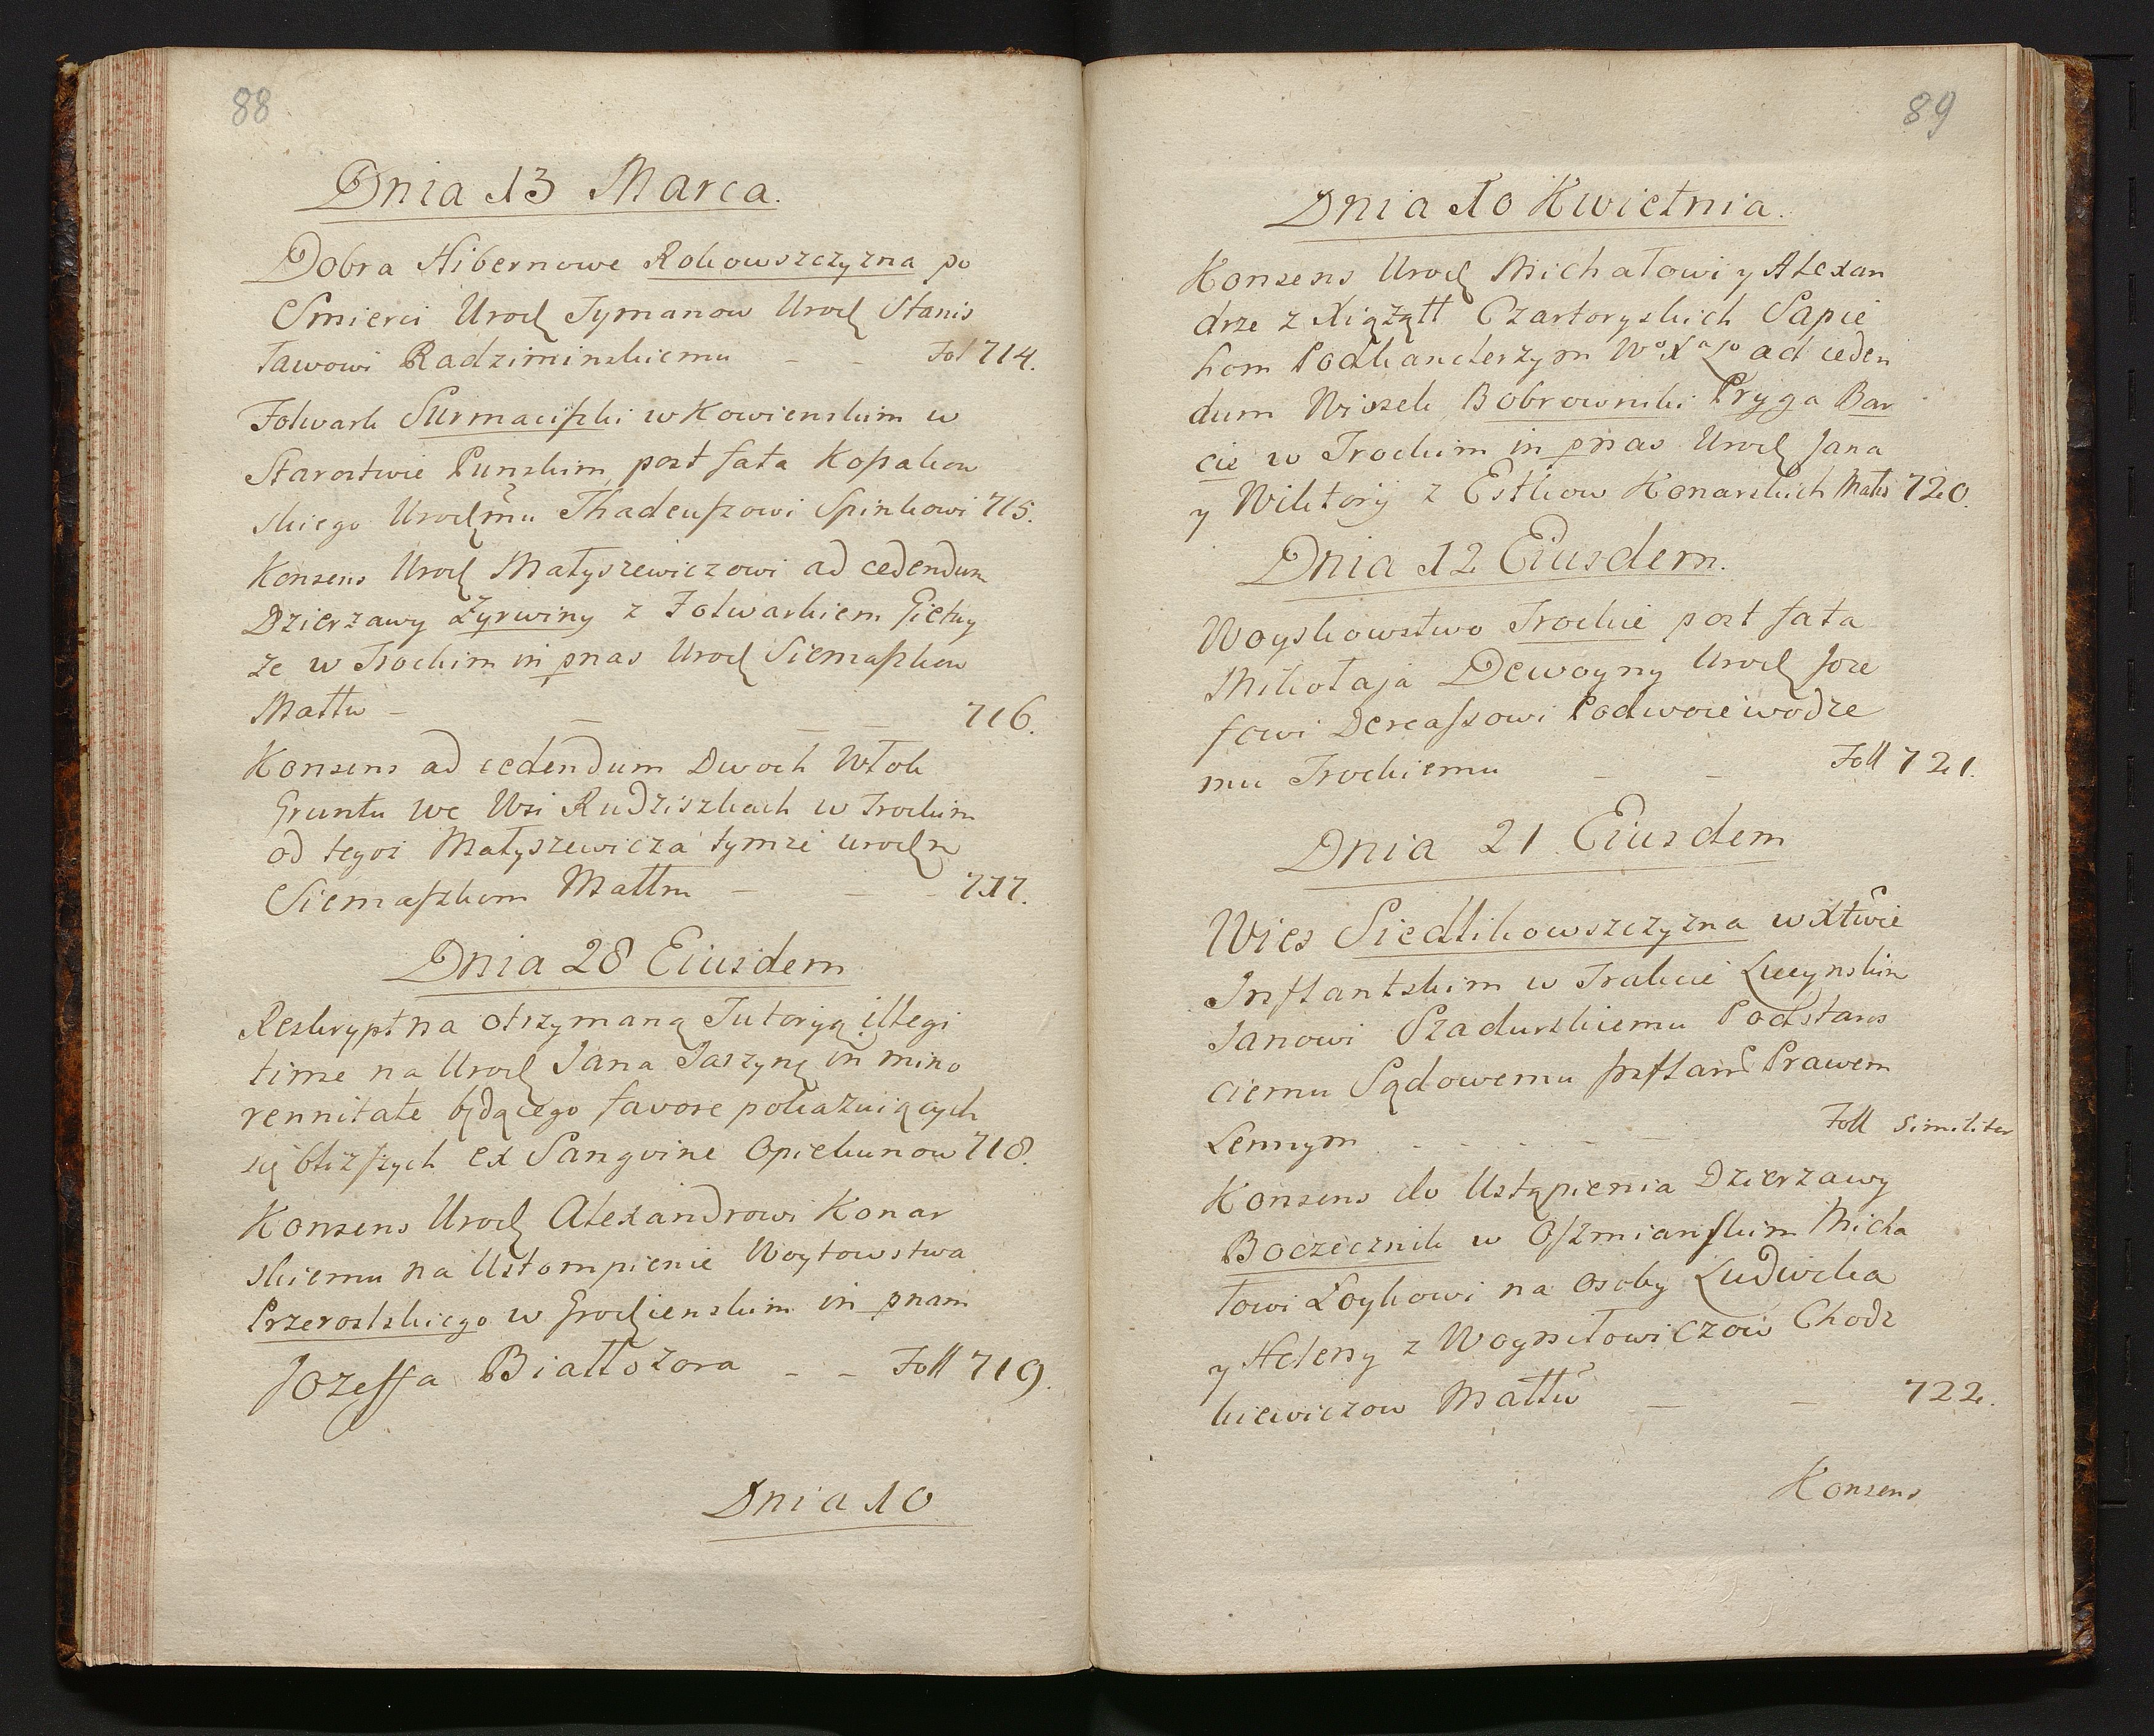 88
Dnia 13 Marca.
Dobra Hibernowe Rokowszczyzna po
Smierci Urodz Tymanow Urodz Stanis
ławowi Radziminskiemu - - Fol 714.
Folwark Surmaciszki w Kowienskim w
Starostwie Punskim post fata Kossakow
skiego Urodzmu Thadeuszowi Spinkowi 715.
Konsens Urodz Małyszewiczowi ad cedendum
Dzierzawy Żyrwiny z Folwarkiem Giełuy
ze w Trockim in pnas Urodz Siemaszkow
Małłw - - - - 716.
Konsens ad cedendum Dwoch Włok
Gruntu we Wsi Rudziszkach w Trockim
od tegoż Małyszewicza tymże urodzm
Siemaszkom Małłm - - - 717.
Dnia 28 Eiusdem
Reskrypt na otrzymaną Tutoryą illegi
time na Urodz Jana Jaszynę in mino
rennitate będącego favore pokazuiących
się bliższych ex Sangvine Opiekunow 718.
Konsens Urodz Alexandrowi Konar
skiemu na Ustompienie Woytowstwa
Przerostskiego w Grodzienskim in pnam
Jozeffa Białłozora - - Foll 719.
Dnia 10
89
Dnia 10 Kwietnia.
Konsens Urodz Michałowi y Alexan
drze z Xiążątt Czartoryskich Sapie
hom Podkanclerzym WoXaLo ad ceden
dum Wiosek Bobrowniki Pryga Bar
cie w Trockim in pnas Urodz Jana
y Wiktoryi z Estkow Konarskich Małś 720.
Dnia 12 Eiusdem.
Woyskowstwo Trockie post fata
Mikołaja Dewoyny Urodz Joze
fowi Dercaszowi Podwoiewodze
mu Trockiemu - - Foll 721.
Dnia 21 Eiusdem
Wies Siedlikowszczyzna w Xtwie
Inflantskim w Trakcie Lucynskim
Janowi Szadurskiemu Podstaros
ciemu Sądowemu Inflant Prawem
Lennym - - - - Foll Similiter
Konsens do Ustąpienia Dzierzawy
Boczecznik w Oszmianskim Micha
łowi Łoykowi na Osoby Ludwika
y Heleny z Woyniłowiczow Chodz
kiewiczow Małłw - - 722.
Konsens